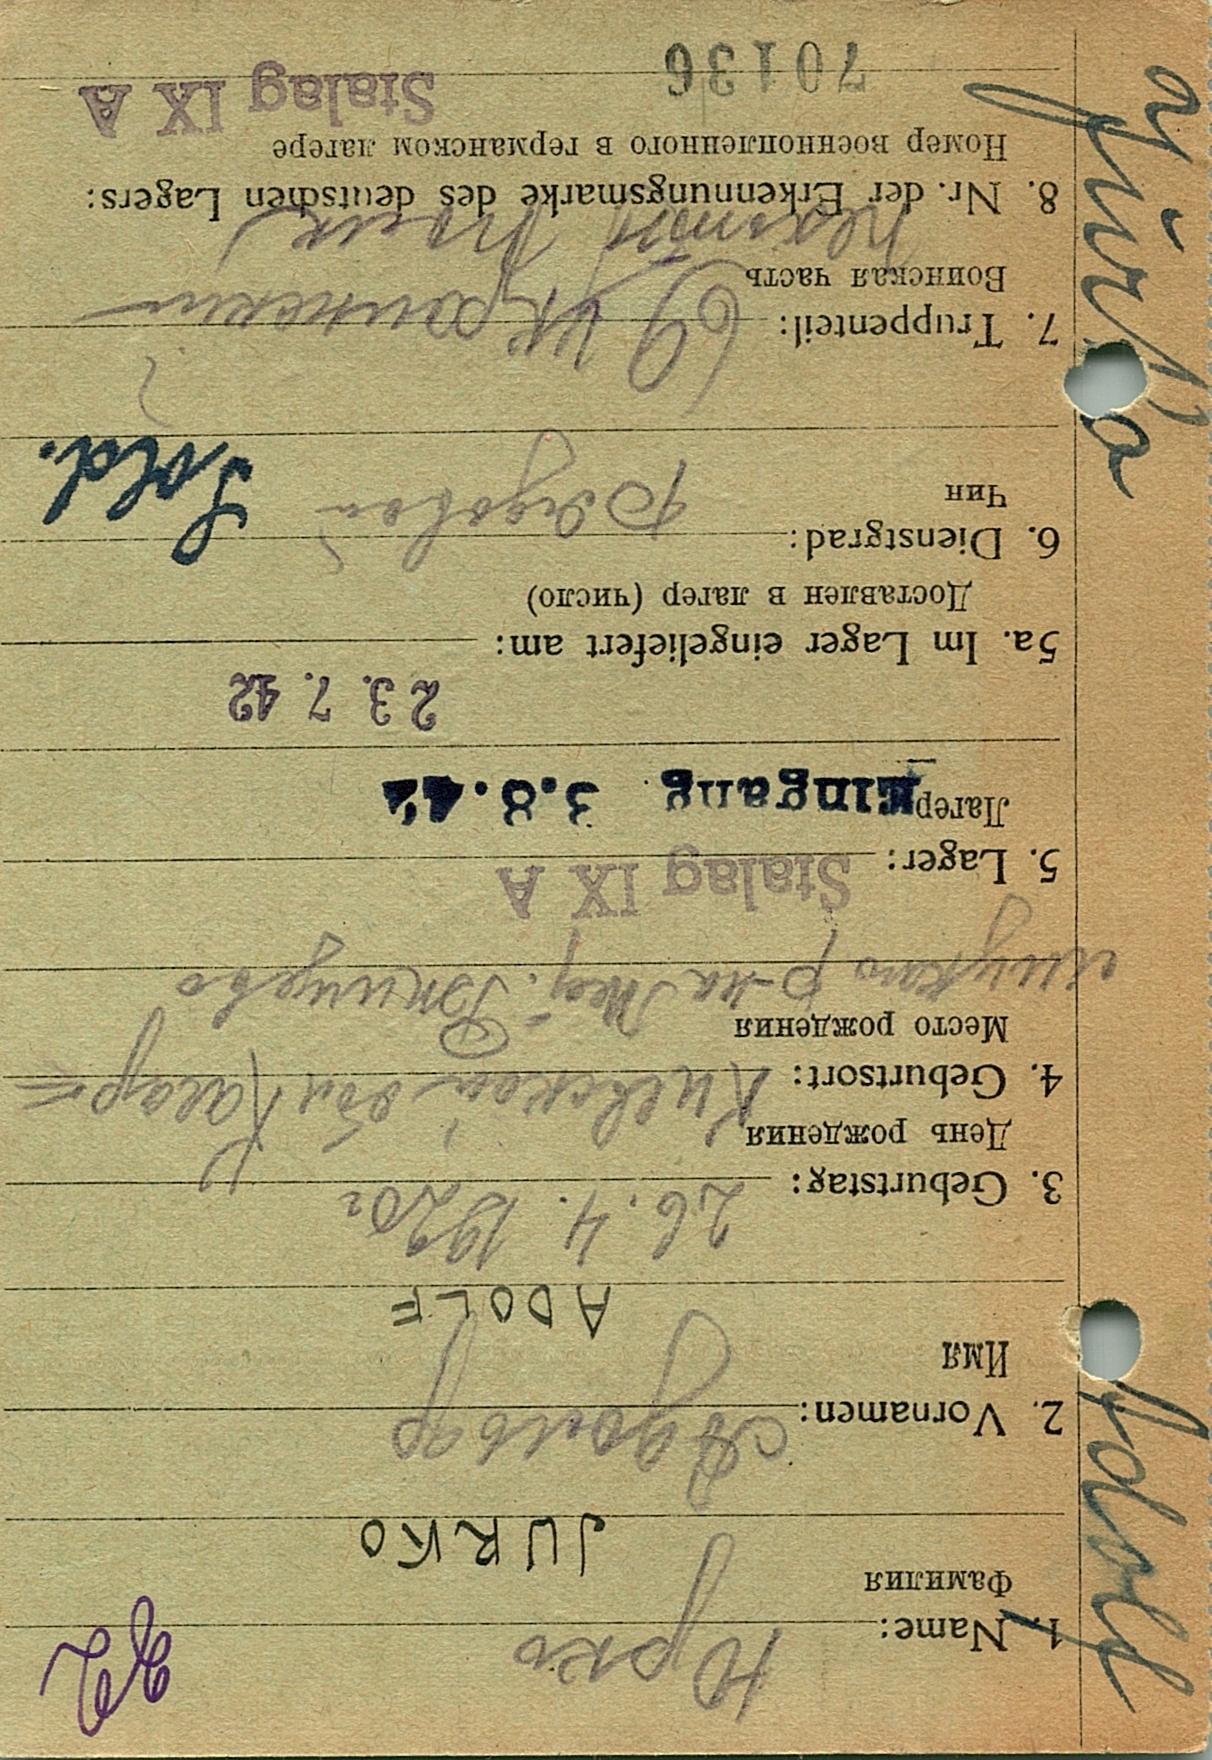 Adolf Jurko
1. Name: Юрко
Фамилия
JURKO
2. Vornamen: Адольф
Имя
ADOLF
26. 4. 1920 г
3. Geburtstag:
День рождения
4. Geburtsort: Киевской обл
Место рождения
р-на
5. Lager: Stalag IX A
Лагер
Eingang 3.8.42
23. 7. 42
5a. Im Lager eingeliefert am:
Доставлен в лагер (число)
6. Dienstgrad: Рядовой Sold.
Чин
?
7. Truppenteil: 69
Воинская часть
8. Nr. der Erkennungsmarke des deutschen Lagers:
Номер военнопленного в германском лагере
70136 Stalag IX A